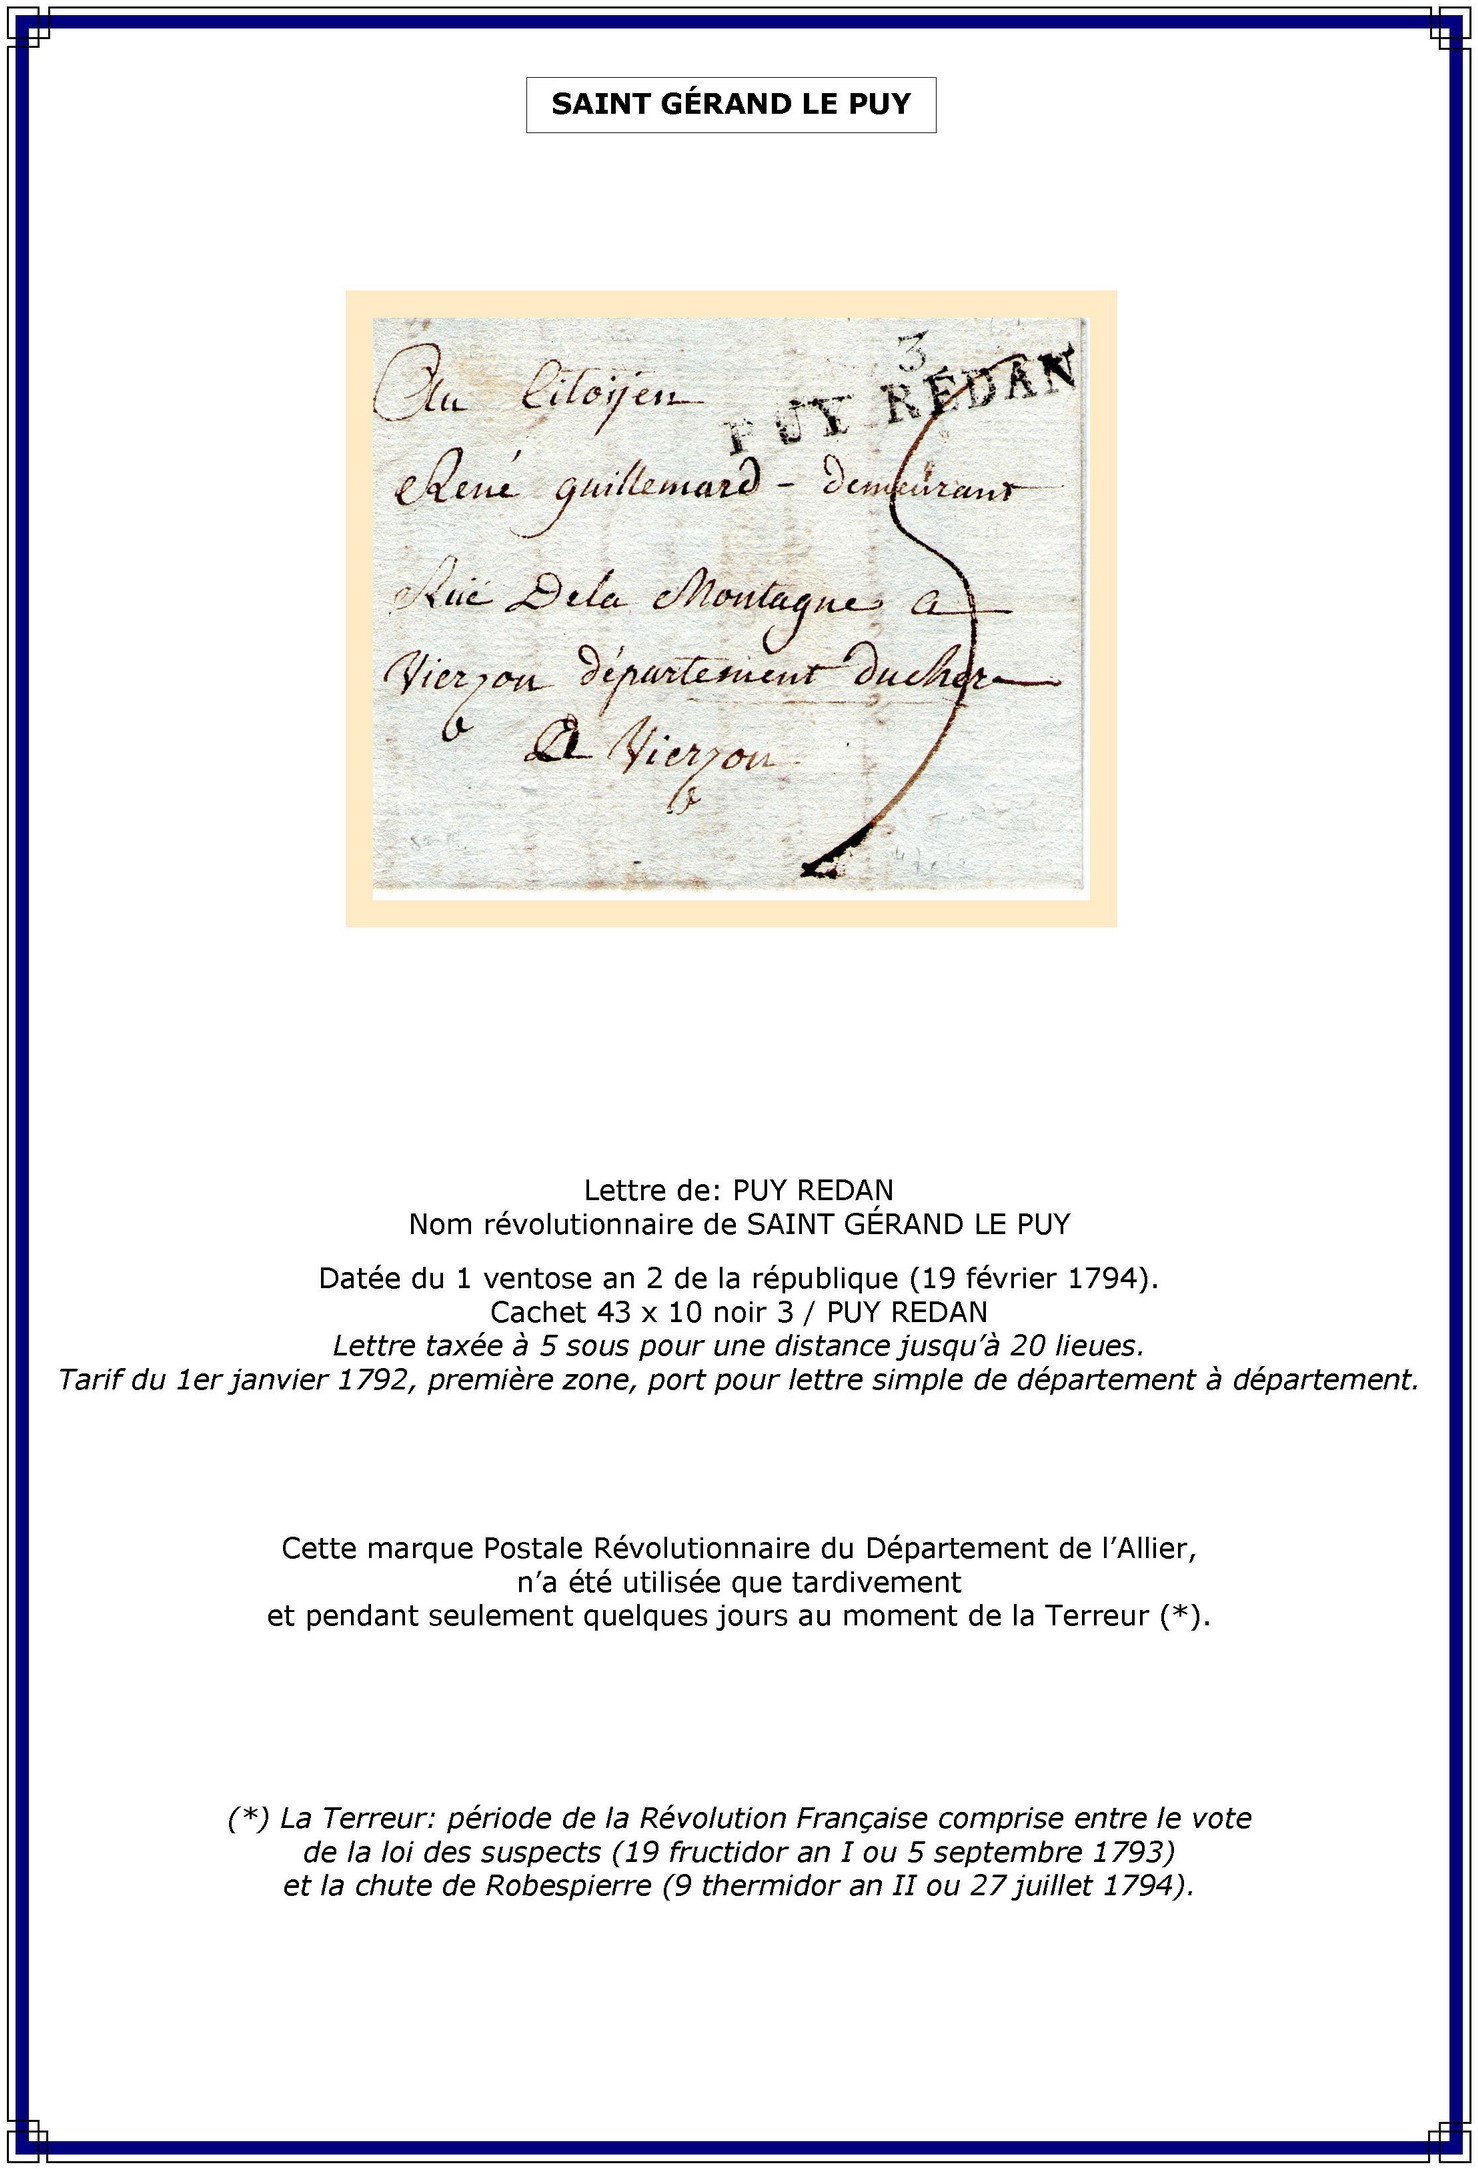 SAINT GÉRAND LE PUY
3
PUY REDAN
Au Citoyen
René guillemard - demeurant
Rue Dela Montagne a
Vierzon département ducher
A Vierzon
5
Lettre de: PUY REDAN
Nom révolutionnaire de SAINT GÉRAND LE PUY
Datée du 1 ventose an 2 de la république (19 février 1794).
Cachet 43 x 10 noir 3 / PUY REDAN
Lettre taxée à 5 sous pour une distance jusqu’à 20 lieues.
Tarif du 1er janvier 1792, première zone, port pour lettre simple de département à département.
Cette marque Postale Révolutionnaire du Département de l’Allier,
n’a été utilisée que tardivement
et pendant seulement quelques jours au moment de la Terreur (*).
(*) La Terreur: période de la Révolution Française comprise entre le vote
de la loi des suspects (19 fructidor an I ou 5 septembre 1793)
et la chute de Robespierre (9 thermidor an II ou 27 juillet 1794).